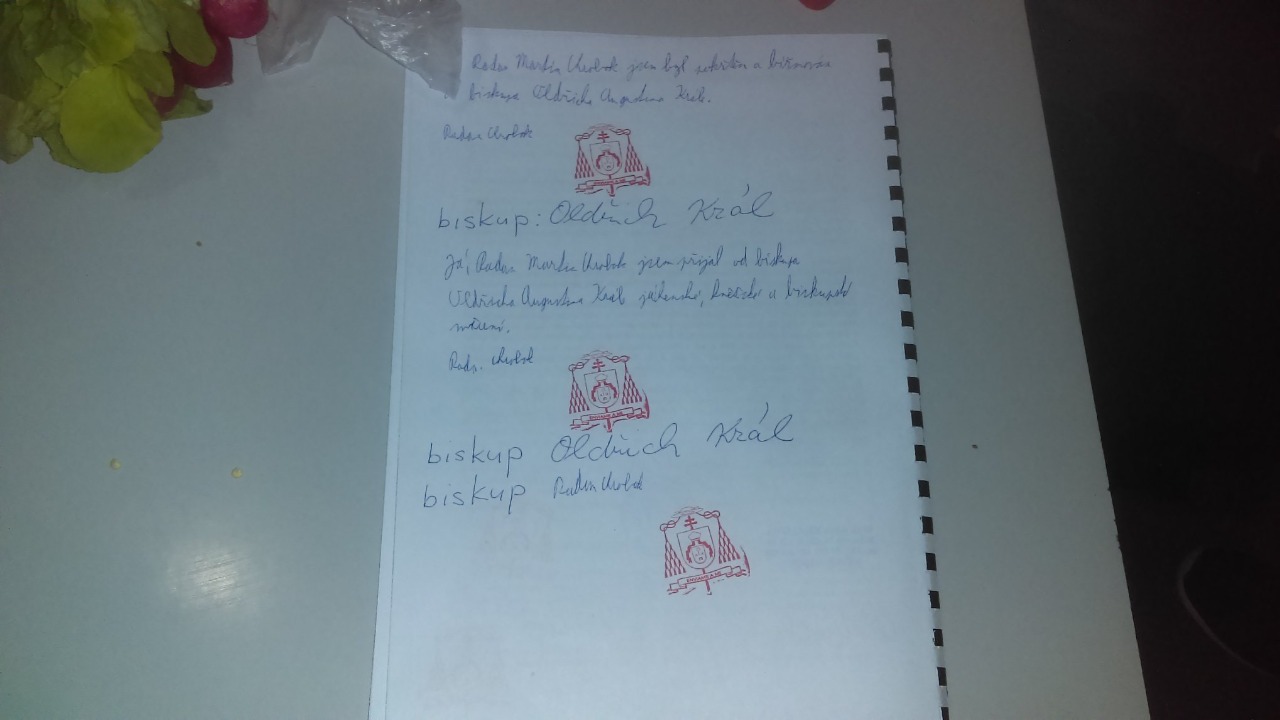 Radan Martin Chrobok jsem byl pokřtěn a biřmován
biskupa Oldřicha Augustina Krále.
Radan Chrobok
biskup: Oldřich Král
Já, Radan Martin Chrobok jsem přijal od biskupa
Oldřicha Augustina Krále jáhenské, kněžské a biskupské
svěcení.
Chrobok
biskup Oldřich Král
biskup Radan Chrobok